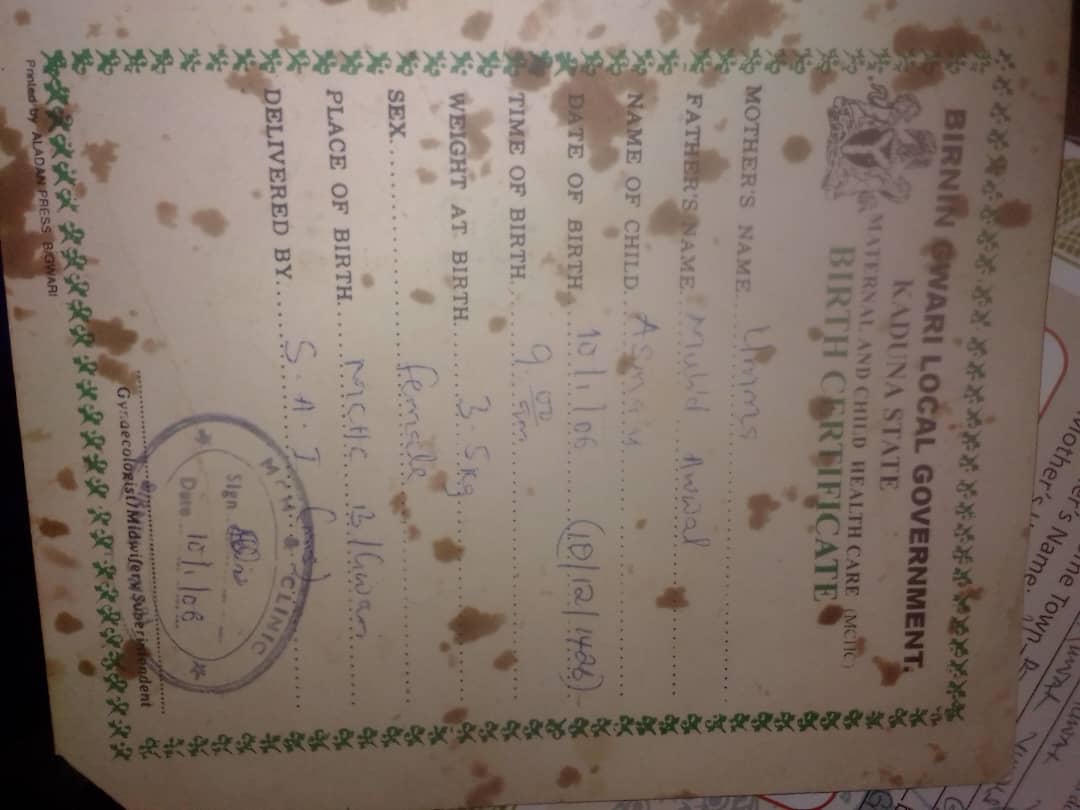 BIRNIN GWARI LOCAL GOVERNMENT.
KADUNA STATE
MATERNAL AND CHILD HEALTH CARE (MCHC)
BIRTH CERTIFICATE
MOTHER'S NAME Umma
FATHER'S NAME Muhd Awwal
NAME OF CHILD
DATE OF BIRTH 10/1/06 (10/12/1426)
TIME OF BIRTH 9 00
WEIGHT AT BIRTH 3.5kg
SEX female
PLACE OF BIRTH MCHC B/Gwari
DELIVERED BY S. A. I
CLINIC
Sign
Date 10/1/06
Gynaecologist/Midwifery/Suberintendent
Printed by ALADAN PRESS B/GWARI
Mother's Name
the Town